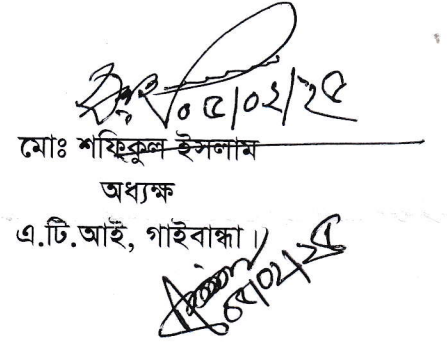 ০৫/০২/২৫
মোঃ শফিকুল ইসলাম
অধ্যক্ষ
এ.টি.আই, গাইবান্ধা।
০৫/০২/২৫